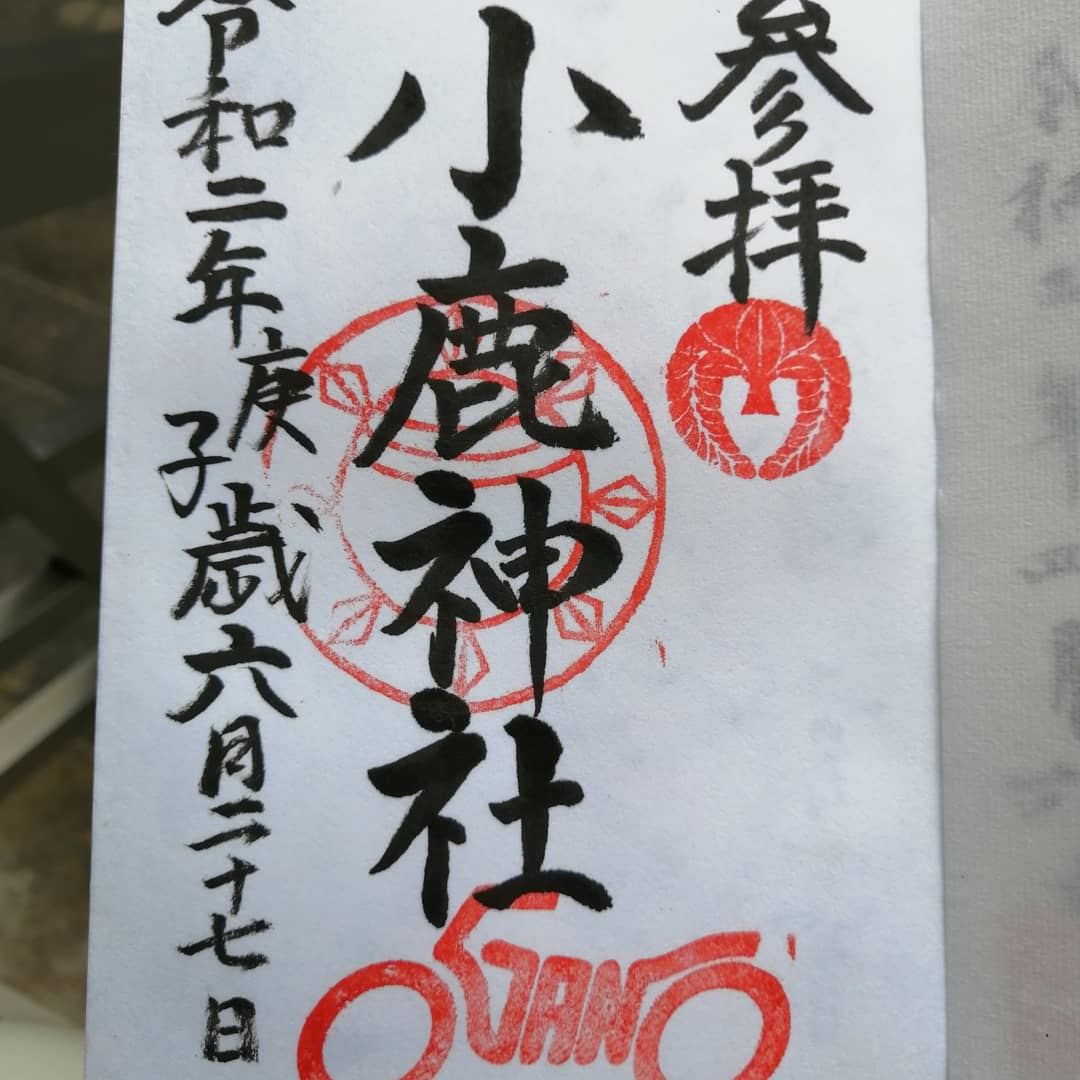 參拝
小鹿神社
令和二年庚子歳六月二十七日